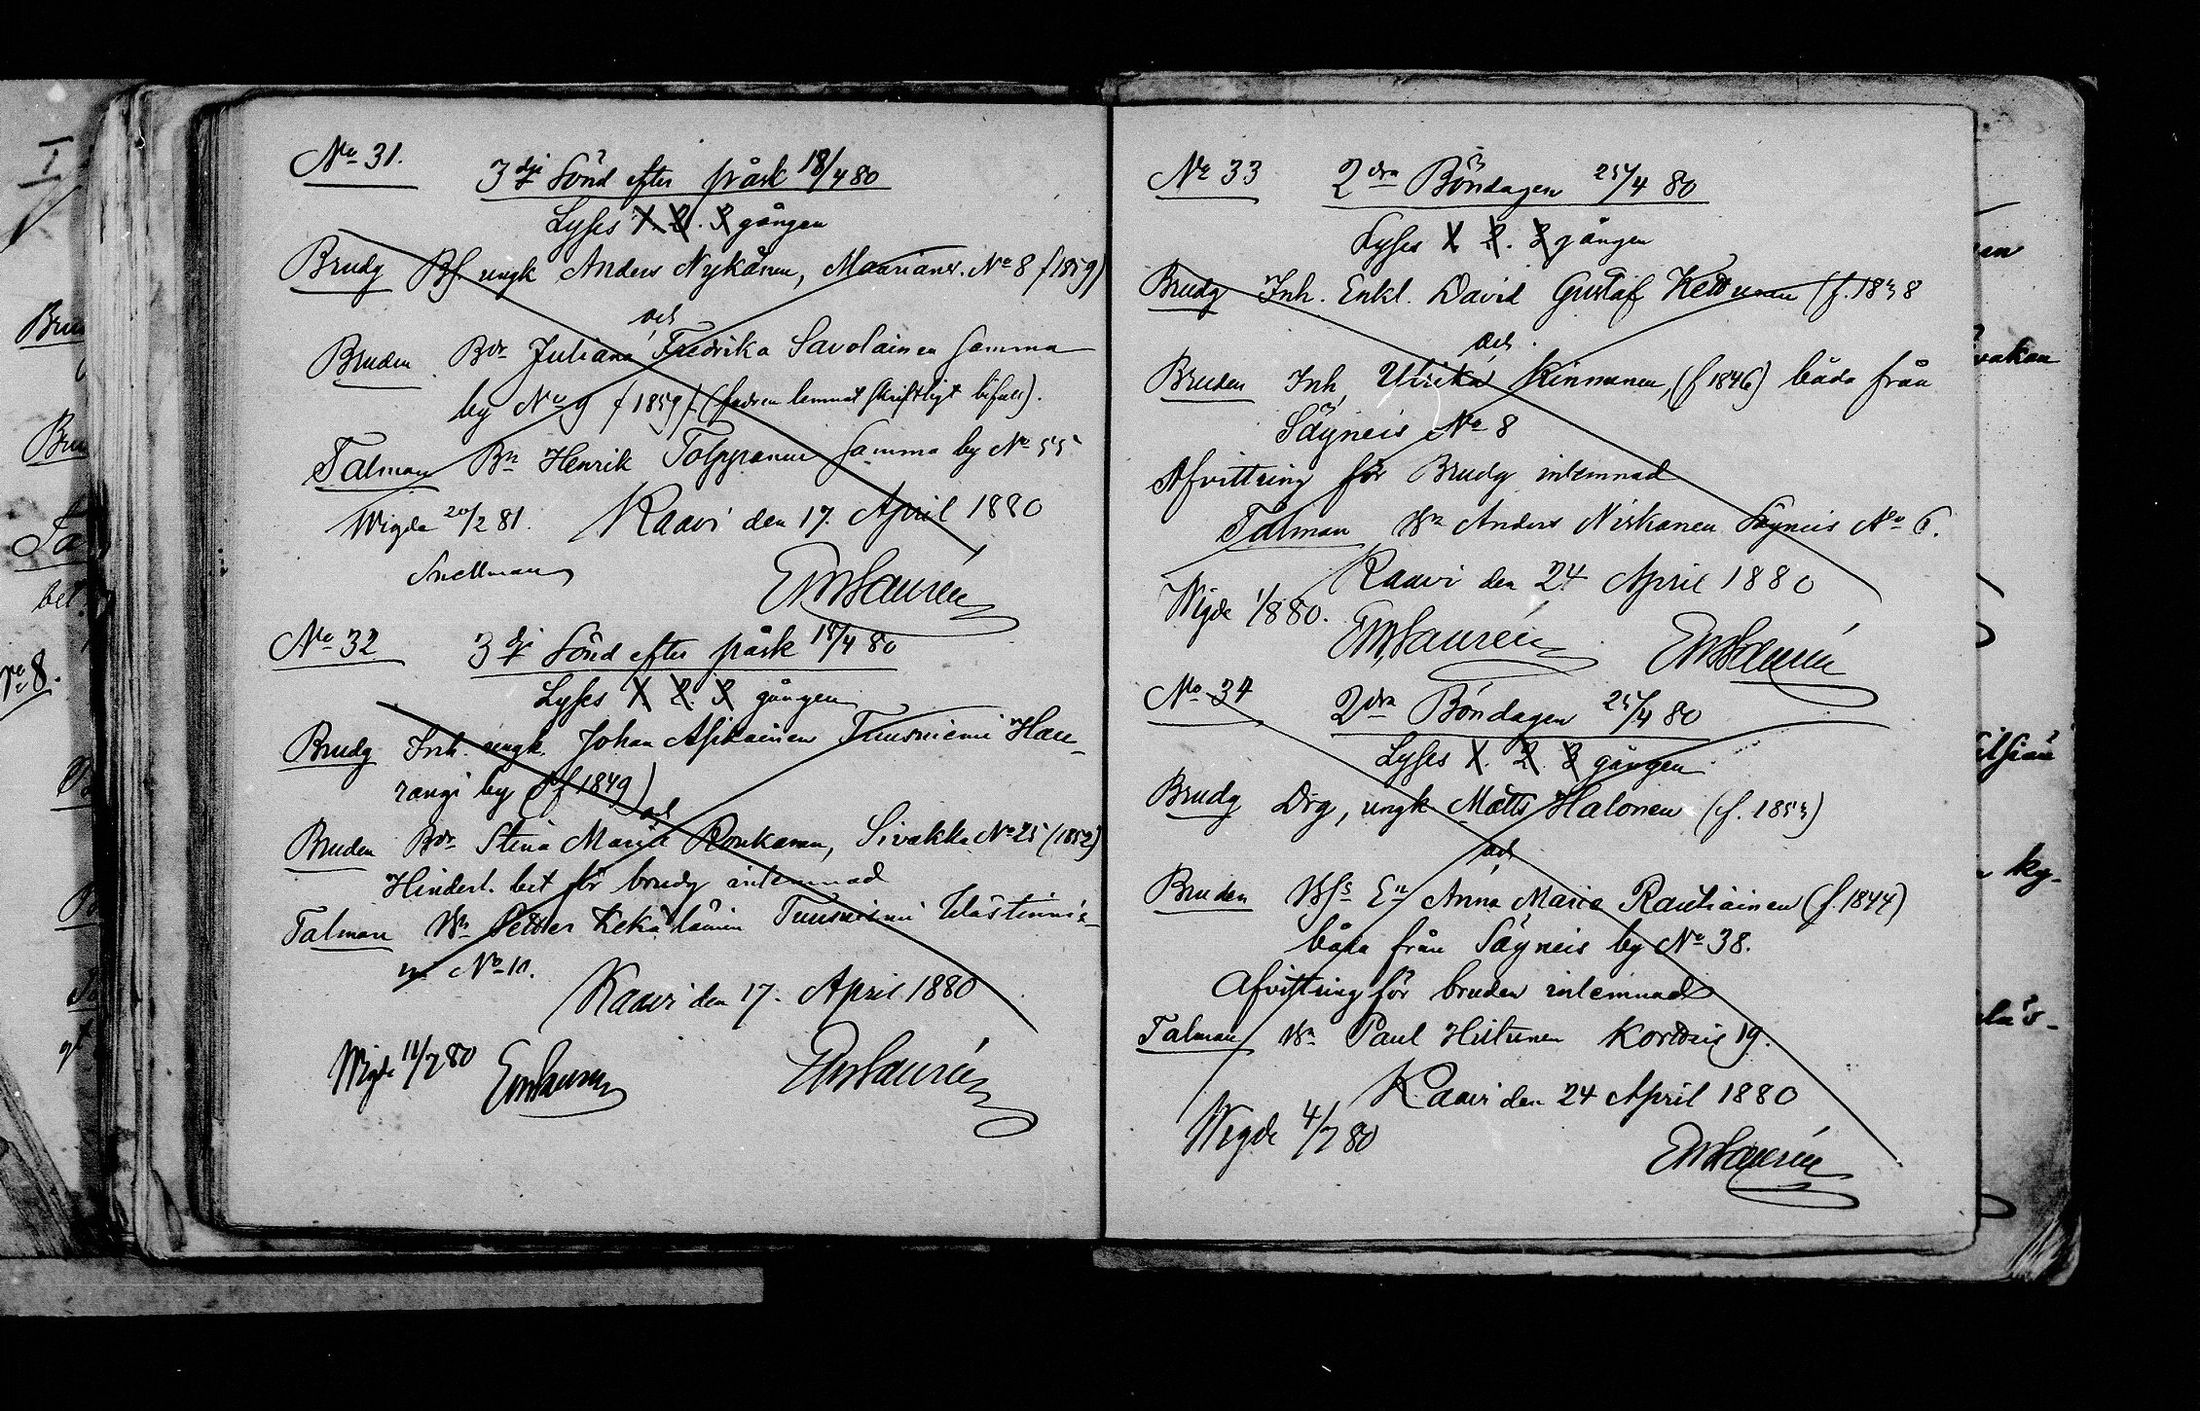 No 31.
3dje Sönd efter påsk 18/4 80
Lyses 1. 2. 3 gången
Brudg Bs ungk Anders Nykänen, Maarianv. No 8 f 1859)
och
Bruden Bdr Juliana Fredrika Savolainen Samma
by No 9 f 1859). (fadren lemnat skriftligt bifall).
Talman Bn Henrik Tolppanen Samma by No 55
Kaavi den 17. April 1880
Wigda 20/2 81.
Snellman
EWLaurén
No 32
3dje Sönd efter påsk 18/4 80
Lyses 1 2. 3 gången
Brudg Inh. ungk. Johan Asikainen Tuusniemi Hau-
rangi by (f 1849)
och
Bruden Bdr Stina Maria Ronkanen, Sivakka No 25 (1852)
Hindersl. bet för brudg inlemnad
Talman Bn Petter Kekäläinen Tuusniemi
No 11.
Kaavi den 17. April 1880
Wigde 11/7 80 EWLaurén
EWLaurén
No 33
2dra Böndagen 25/4 80
Lyses 1. 2. 3 gången
Brudg Inh. Enkl. David Gustaf Kettunen (f. 1838
och
Bruden Inh, Ulrika Kinnunen, (f 1846) båda från
Säyneis No 8
Afvittring för Brudg inlemnad
Talman Bn Anders Niskanen Säyneis No 6.
Kaavi den 24 April 1880
Wigde 1/8 80.
EWLaurén EWLaurén
No 34
2dra Böndagen 25/4 80
Lyses 1. 2. 3 gången
Brudg Drg, ungk Matts Halonen (f. 1853)
och
Bruden Bfs En Anna Maria Rautiainen (f. 1844)
båda från Säyneis by No 38.
Afvittring för bruden inlemnad
Talman Bn Paul Hiltunen Kortteis 19.
Kaavi den 24 April 1880
Wigde 4/7 80
EWLaurén